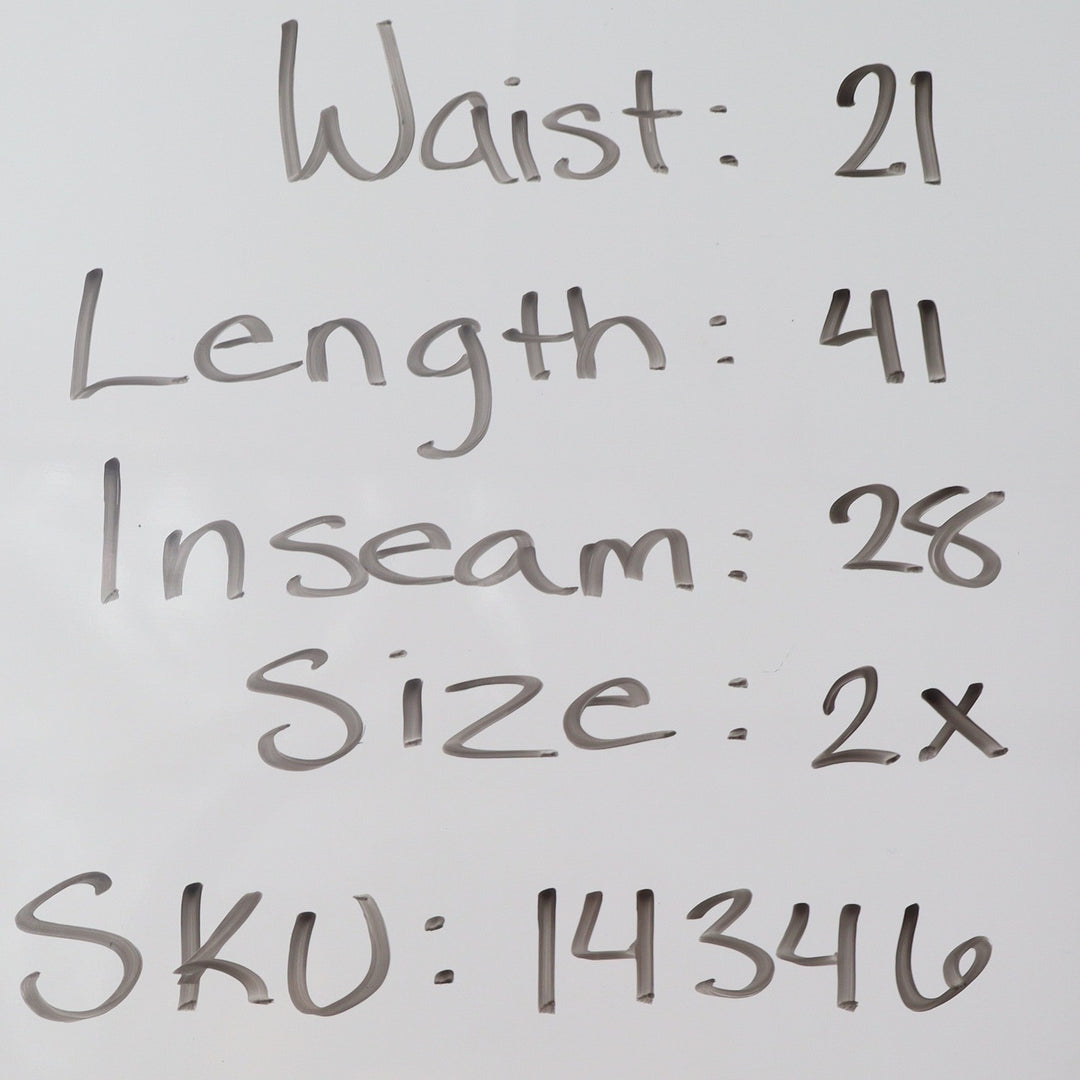 Waist: 21
Length: 41
Inseam: 28
Size: 2x
SKU: 14346